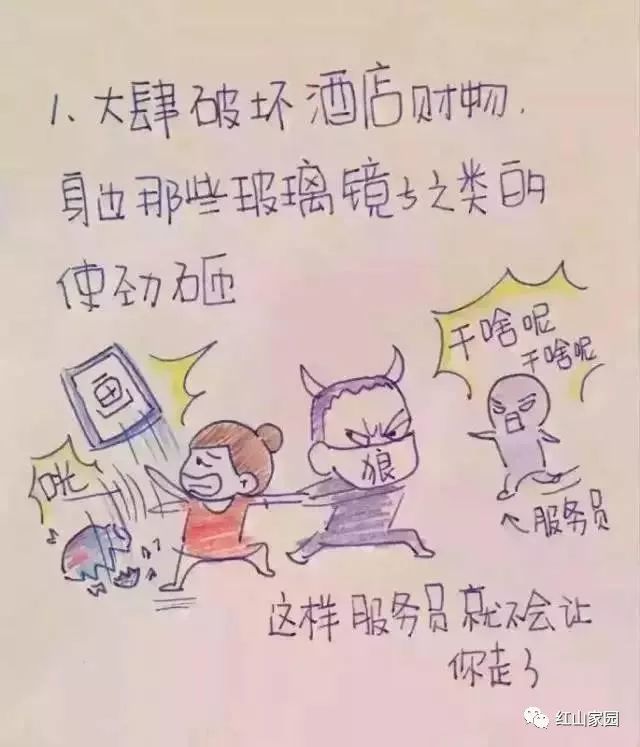 1、大肆破坏酒店财物.
身边那些玻璃镜子之类的
使劲砸
画
咣
狼
干啥呢
干啥呢
服务员
这样服务员就不会让
你走了
红山家园